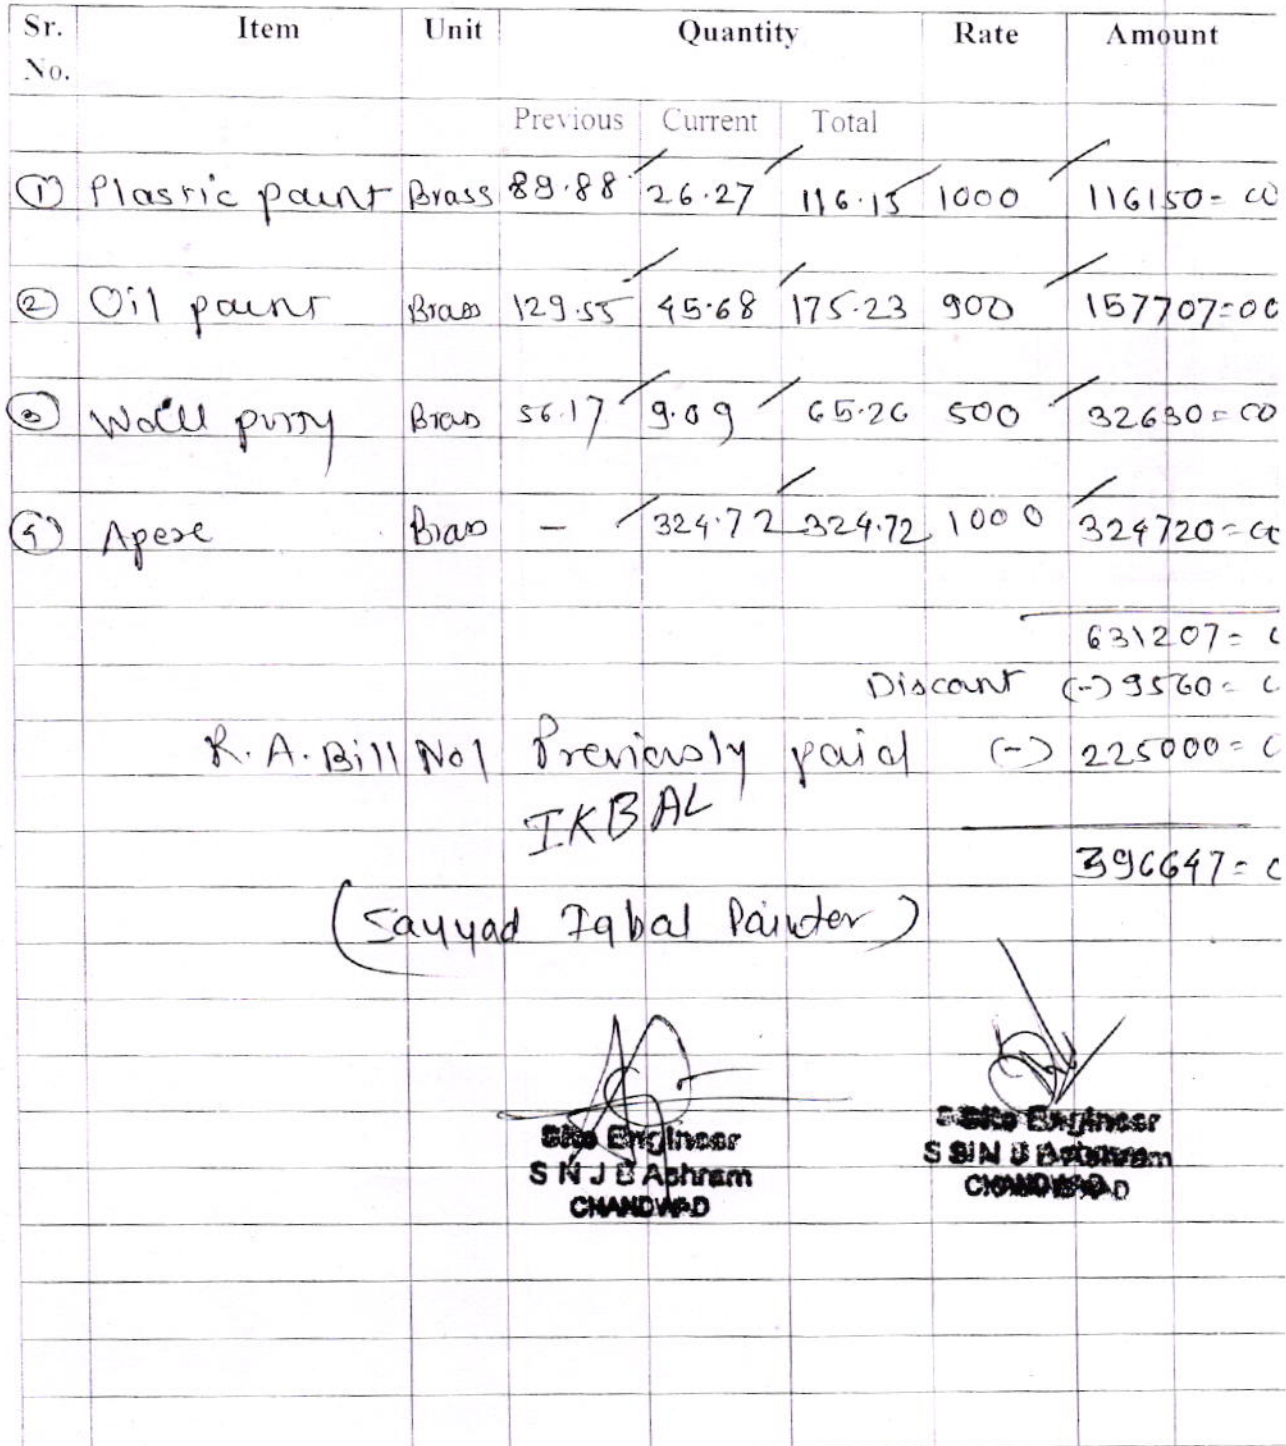 Sr. No. Item Unit Quantity Rate Amount
Previous Current Total
① Plastic paint Brass 89.88 26.27 116.15 1000 116150=00
② Oil paint Brass 129.55 45.68 175.23 900 157707=00
③ Wall putty Brass 56.17 9.09 65.26 500 32630=00
④ Apexe Brass - 324.72 324.72 1000 324720=00
631207=
Discount (-) 9560=
R.A. Bill No 1 Previously paid (-) 225000=
IKBAL
396647=
(Sayyad Iqbal Painter)
Site Engineer
S N J B Ashram
CHANDWAD
Site Engineer
CHANDWAD